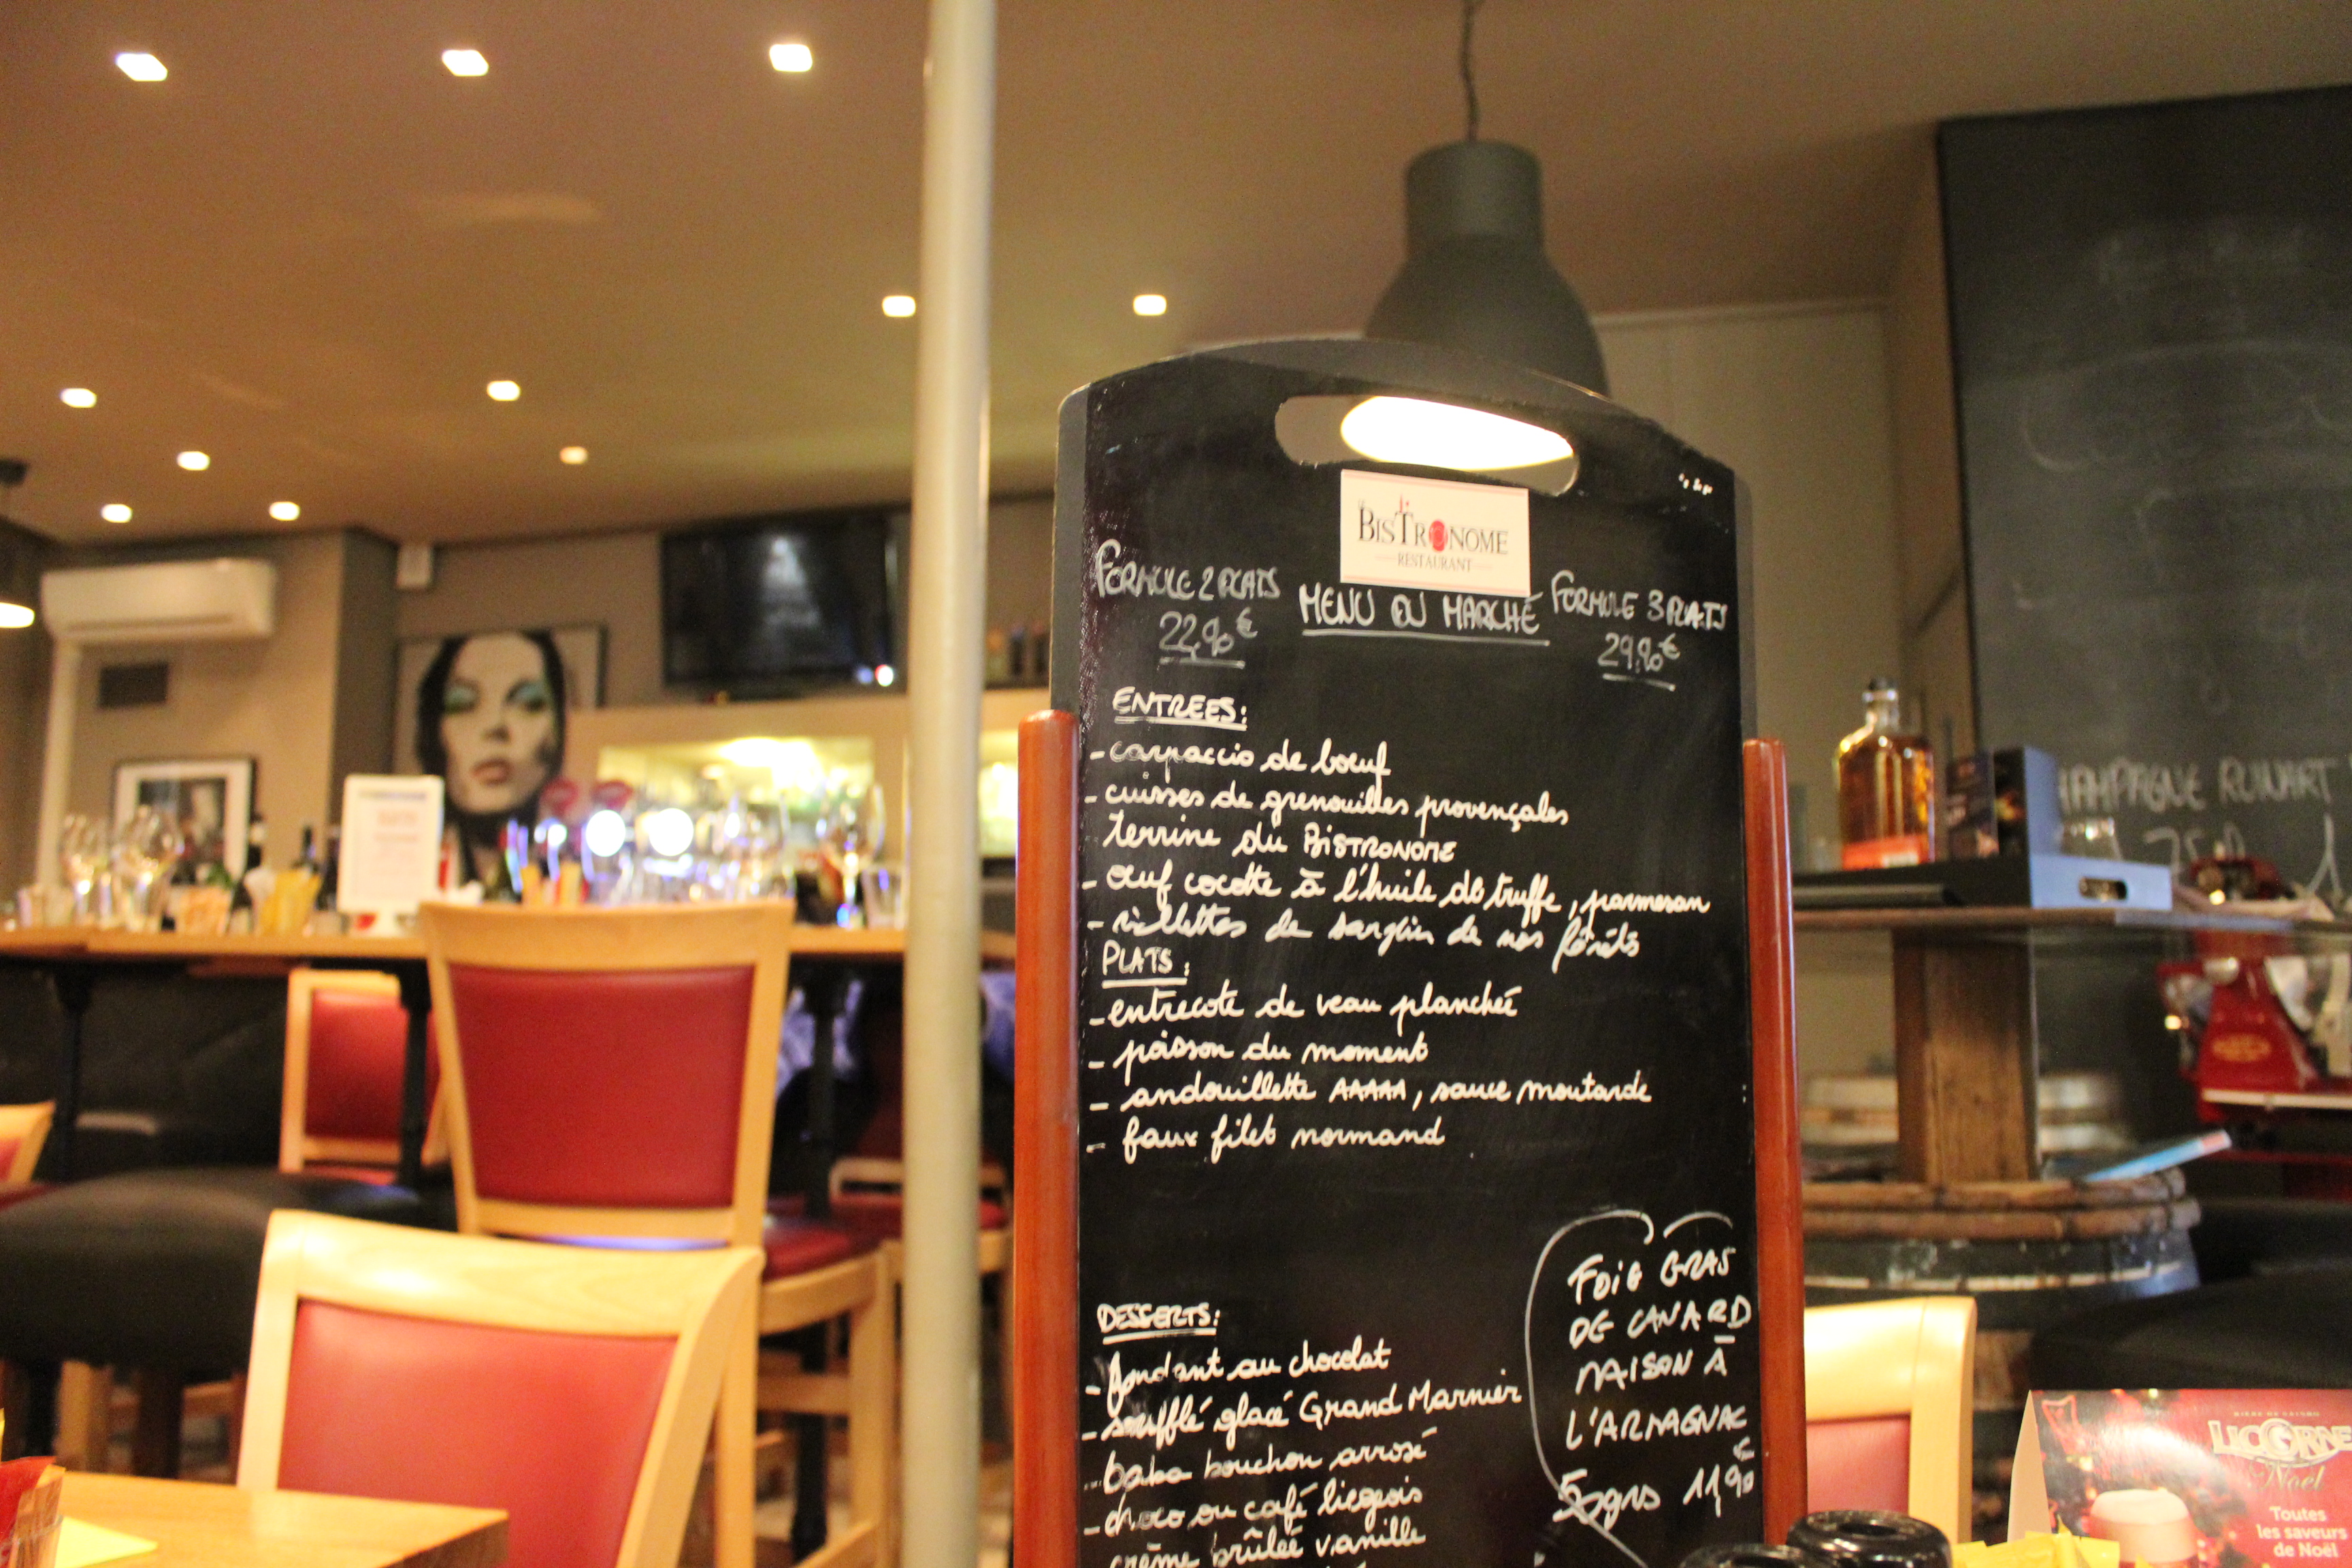 BISTRONOME
RESTAURANT
FORMULE 2 PLATS
22,90€
MENU DU MARCHÉ
FORMULE 3 PLATS
29,90€
ENTREES:
- carpaccio de bœuf
- cuisses de grenouilles provençales
- terrine du BISTRONOME
- œuf cocotte à l'huile de truffe, parmesan
- rillettes de sanglier de nos forêts
PLATS:
- entrecote de veau planchée
- poisson du moment
- andouillette AAAAA, sauce moutarde
- faux filet normand
DESSERTS:
- fondant au chocolat
- soufflé glacé Grand Marnier
- baba bouchon arrosé
- choco ou café liegeois
crème brûlée vanille
FOIE GRAS
DE CANARD
MAISON À
L'ARMAGNAC
50grs 11,90€
CHAMPAGNE RUINART
LICORNE
Noël
Toutes
les saveurs
de Noël